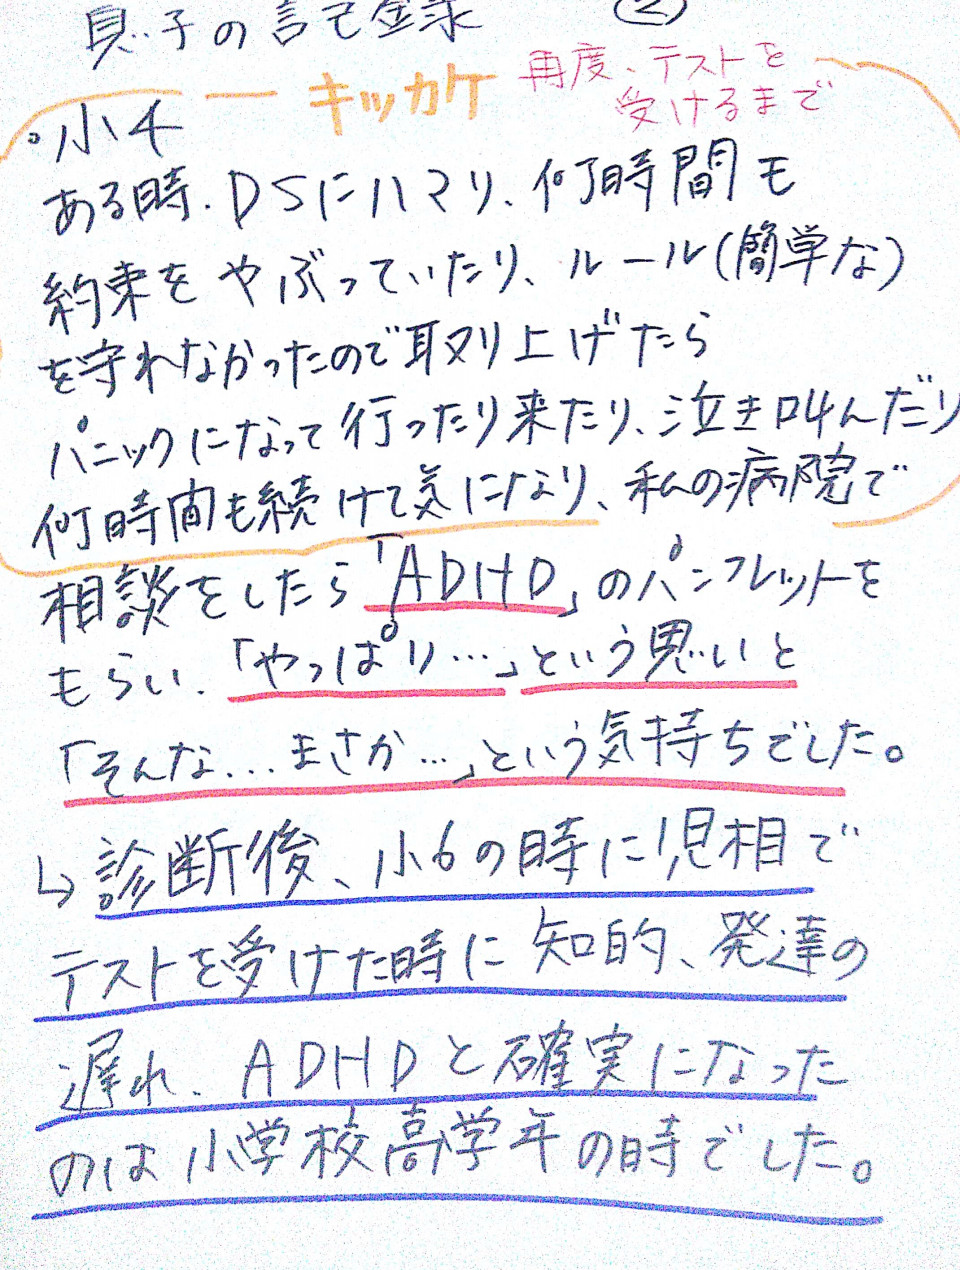 息子の記録 ②
キッカケ 再度、テストを
受けるまで
・小4
ある時、DSにハマり、何時間も
約束をやぶっていたり、ルール(簡単な)
を守れなかったので取り上げたら
パニックになって行ったり来たり、泣き叫んだり
何時間も続けて気になり、私の病院で
相談をしたら「ADHD」のパンフレットを
もらい、「やっぱり…」という思いと
「そんな…まさか…」という気持ちでした。
↳診断後、小6の時に児相で
テストを受けた時に知的、発達の
遅れ、ADHDと確実になった
のは小学校高学年の時でした。